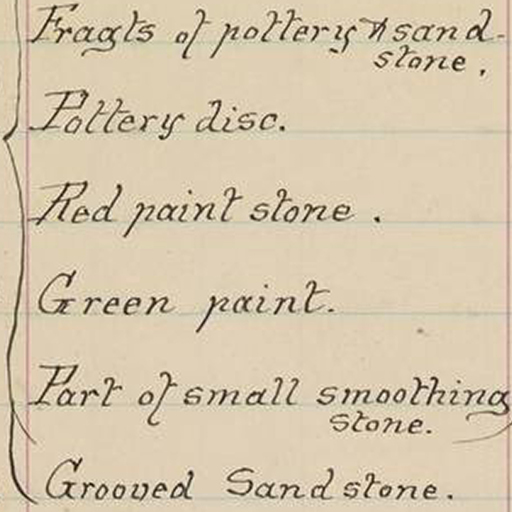 Fragts of pottery & sand-
stone.
Pottery disc.
Red paint stone.
Green paint.
Part of small smoothing
stone.
Grooved Sandstone.